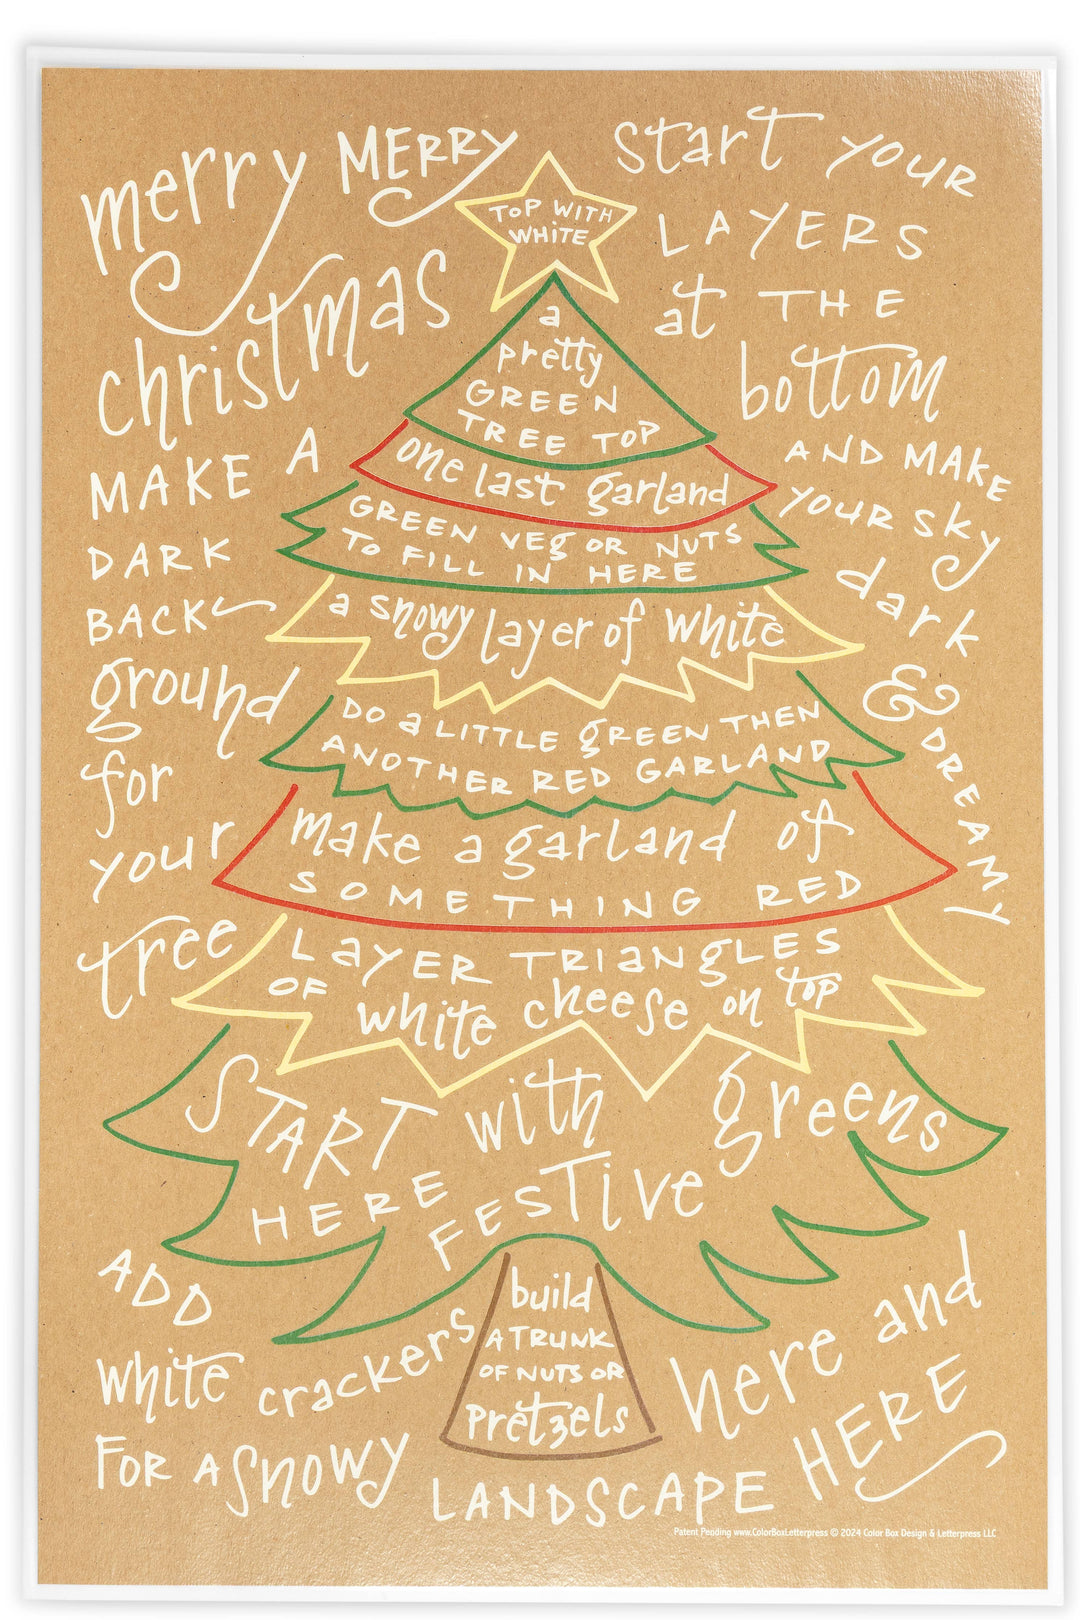 merry MERRY
christmas
MAKE A
DARK
BACK
ground
for
your
tree
start your
LAYERS
at THE
bottom
AND MAKE
your sky
dark
&
DREAMY
TOP WITH
WHITE
a
pretty
GREEN
TREE TOP
one last garland
GREEN VEG OR NUTS
TO FILL IN HERE
a snowy layer of white
DO a LITTLE gREEN THEN
ANOTHER RED GARLAND
make a garland of
SOMETHING RED
LAYER TRIANgLES
OF white cheese on top
START with greens
HERE FESTIVE
build
A TRUNK
OF NUTS OR
pretzels
ADD
white crackers
FOR A snowy
LANDSCAPE
here and
HERE
Patent Pending www.ColorBoxLetterpress © 2024 Color Box Design & Letterpress LLC